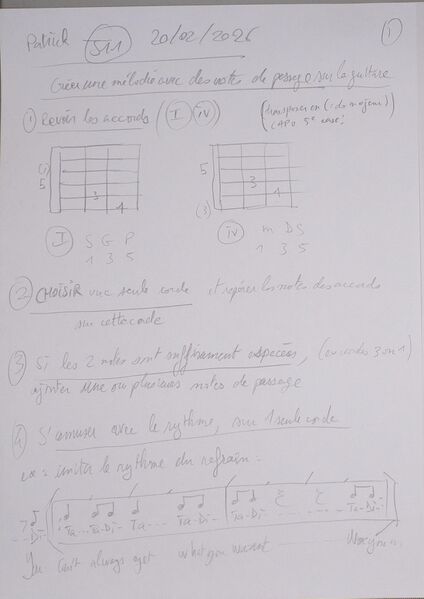 Patrick S11 20/02/2026 ①
Créer une mélodie avec des notes de passage sur la guitare
① Revoir les accords (I iv) (transposer en (: do majeur)
CAPO 5e case)
(1) 5 3 4
5 (3) 3 1
I S G P
1 3 5
iv m D S
1 3 5
② CHOISIR une seule corde et repérer les notes des accords
sur cette corde
③ Si les 2 notes sont suffisament espacées, (ou cordes 3 ou 1)
ajouter une ou plusieurs notes de passage
④ S'amuser avec le rythme, sur 1 seule corde
ex = imiter le rythme du refrain :
Di- Ta... Ta-Di- Ta... Ta-Di- Ta-Di- ... Ta-Di-
You Can't always get what you want